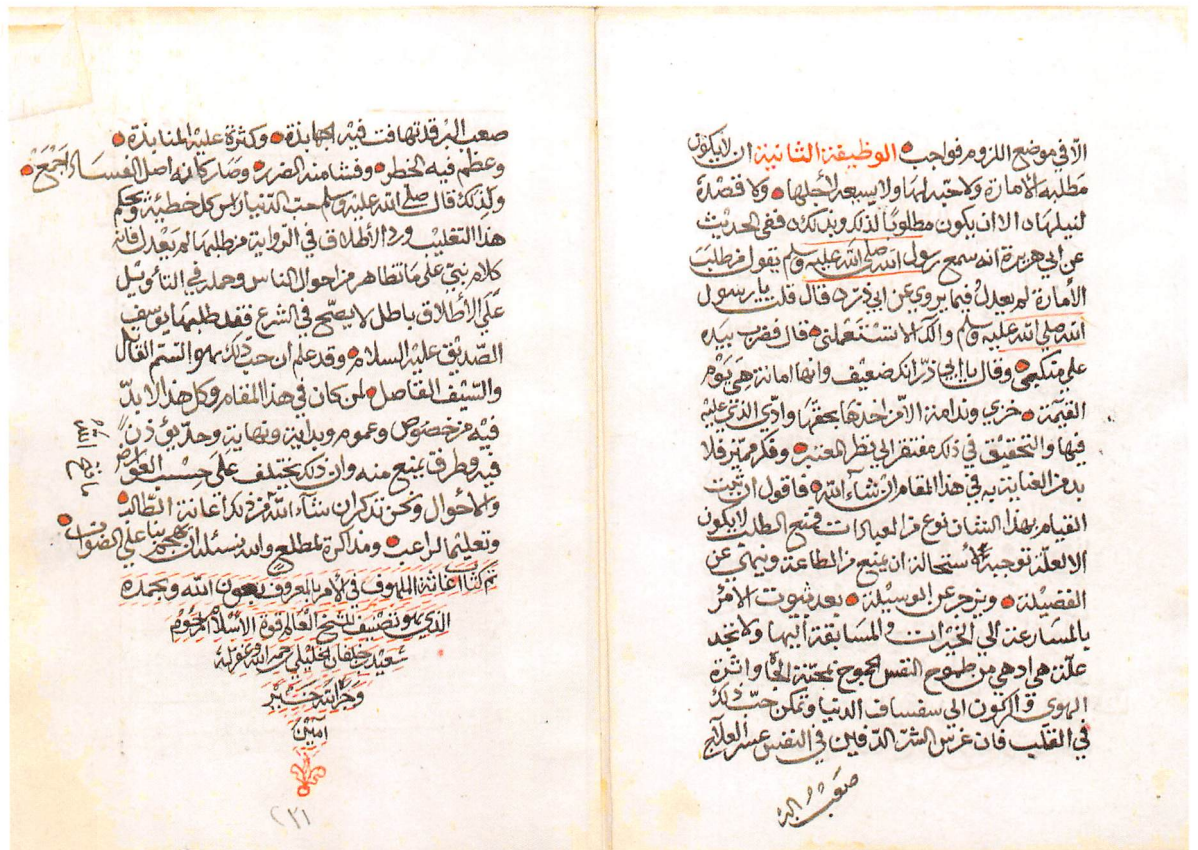 الا في موضع اللزوم فواجب الوظيفة الثانية ان لا يكون
مطلبه الأمارة ولا حبه لها ولا يسعد لأجلها ولا قصده
لنيلها الا ان يكون مطلوبا لذلك وبذلك ففي الحديث
عن ابي هريرة انه سمع رسول الله صلى الله عليه وسلم يقول من طلب
الأمارة لم يعدل فيما يروي عن ابي ذر قال قلت يا رسول
الله صلى الله عليه وسلم الا تستعملني قال فضرب بيده
على منكبي وقال يا ابي ذر انك ضعيف وانها امانة هي يوم
القيمة خزي وندامة الا من اخذها بحقها وادى الذي عليه
فيها والتحقيق في ذلك مفتقر الى نظر المعتبر وفكر مميز فلا
بد من العناية به في هذا المقام ان شاء الله فاقول ان تثبت
القيام بهذا الشان نوع من العبادات فمنع الطلب لا يكون
الا لعلة توجبه لاستحالة ان يمنع من الطاعة وينهى عن
الفضيلة ويزجر عن الوسيلة بعد ثبوت الامر
بالمسارعة الى الخيرات والمسابقة اليها ولا تجد
علة هي ادهى من طموح النفس الجموح لمحبة الجاه واثرة
الهوى والركون الى سفساف الدنيا وتمكن حب ذلك
في القلب فان غرس الشر الدفين في النفس عسر العلاج
صعب البر
صعب البر قد تهافت فيه الجهابذة وكثرة عليه المنابذة
وعظم فيه الخطر وفشا منه الضرر وصار كانه اصل الفساد اجمع
ولذلك قال صلى الله عليه وسلم حب الدنيا راس كل خطيئة وبحكم
هذا التغليب ورد الأطلاق في الرواية من طلبها لم يعدل فانه
كلام نبي على ما تظاهر من احوال الناس وحمله في التأويل
على الأطلاق باطل لا يصح في الشرع فقد طلبها يوسف
الصديق عليه السلام وقد علم ان حب ذلك هو السم القاتل
والسيف الفاصل لمن كان في هذا المقام وكل هذا لا بد
فيه من خصوص وعموم وبداية ونهاية وحد يؤذن
فيه وطرف يمنع منه وان ذلك يختلف على حسب العوارض
والأحوال ونحن نذكر ان شاء الله من ذلك اعانة للطالب
وتعليما للراغب ومذاكرة لمطلع والله نسئله ان يهجم بنا على الصواب
تم كتاب اغاثة الملهوف في الأمر بالمعروف بعون الله وبحمده
الذي هو تصنيف الشيخ العالم قدوة الأسلام المرحوم
سعيد بن خلفان الخليلي رحمه الله وغفر له
وجزاه الله خير
آمين
٢٣١